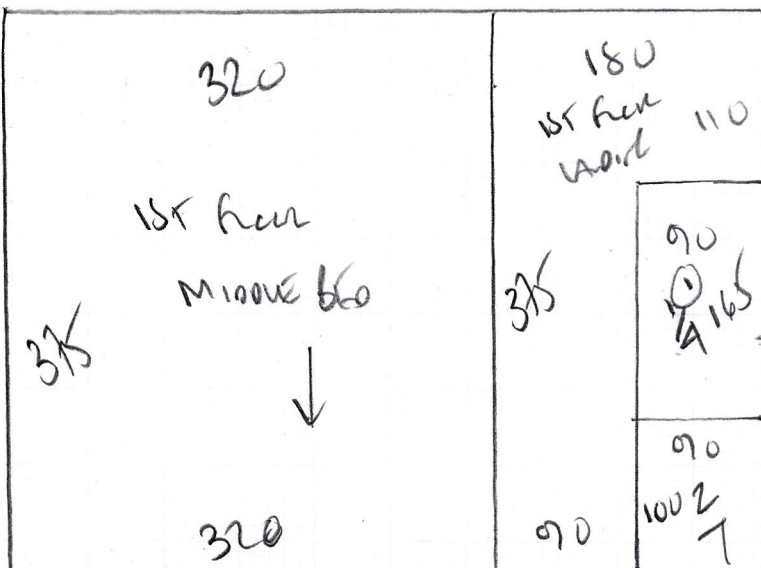 320
1ST Floor
MIDDLE BED
375
320
180
1ST Floor
110
375
90
90
1
165
90
100 2